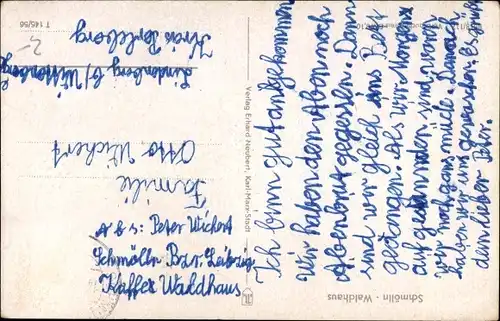 Ich binn gut angekommen
Wir haben den Aben noch
Abenbrot gegessen. Dann
sind wir gleich ins Bett
gegangen. Als wir Morgen
auf sind waren
wir noch ganz müde. Danach
haben wir uns gewaschen. Es grüßt
dein lieber Peter.
Schmölln - Waldhaus
Verlag Erhard Neubert, Karl-Marx-Stadt
T 145/56
2-
Familie
Otto Wichert
Lindenberg b/ Wittenberge
Kreis Perleberg
Peter Wichert
Schmölln Bez. Leipzig
Kaffee Waldhaus